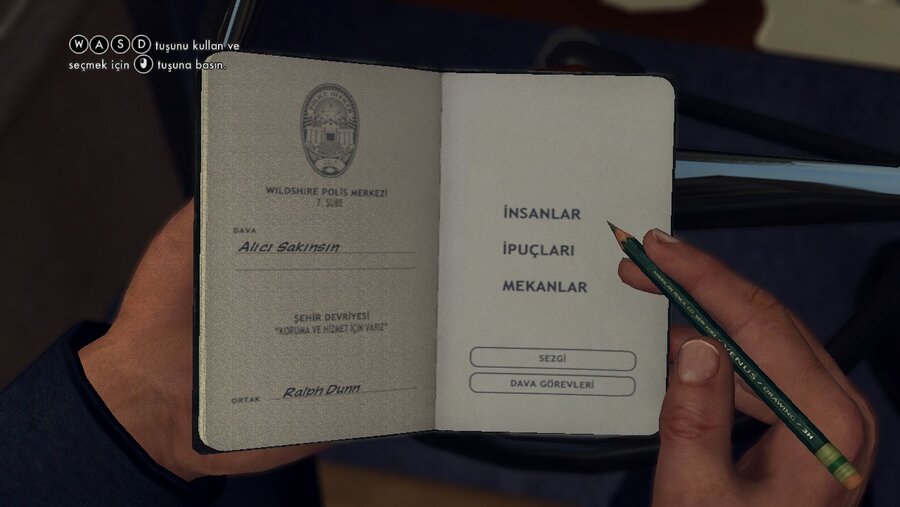 W A S D tuşunu kullan ve
seçmek için tuşuna basın.
POLICE OFFICER
WILDSHIRE POLİS MERKEZİ
7. ŞUBE
DAVA
Alıcı Sakınsın
ŞEHİR DEVRİYESİ
"KORUMA VE HİZMET İÇİN VARIZ"
ORTAK Ralph Dunn
İNSANLAR
İPUÇLARI
MEKANLAR
SEZGİ
DAVA GÖREVLERİ
AMERICAN PENCIL CO. NEW YORK VENUS / DRAWING / 3H